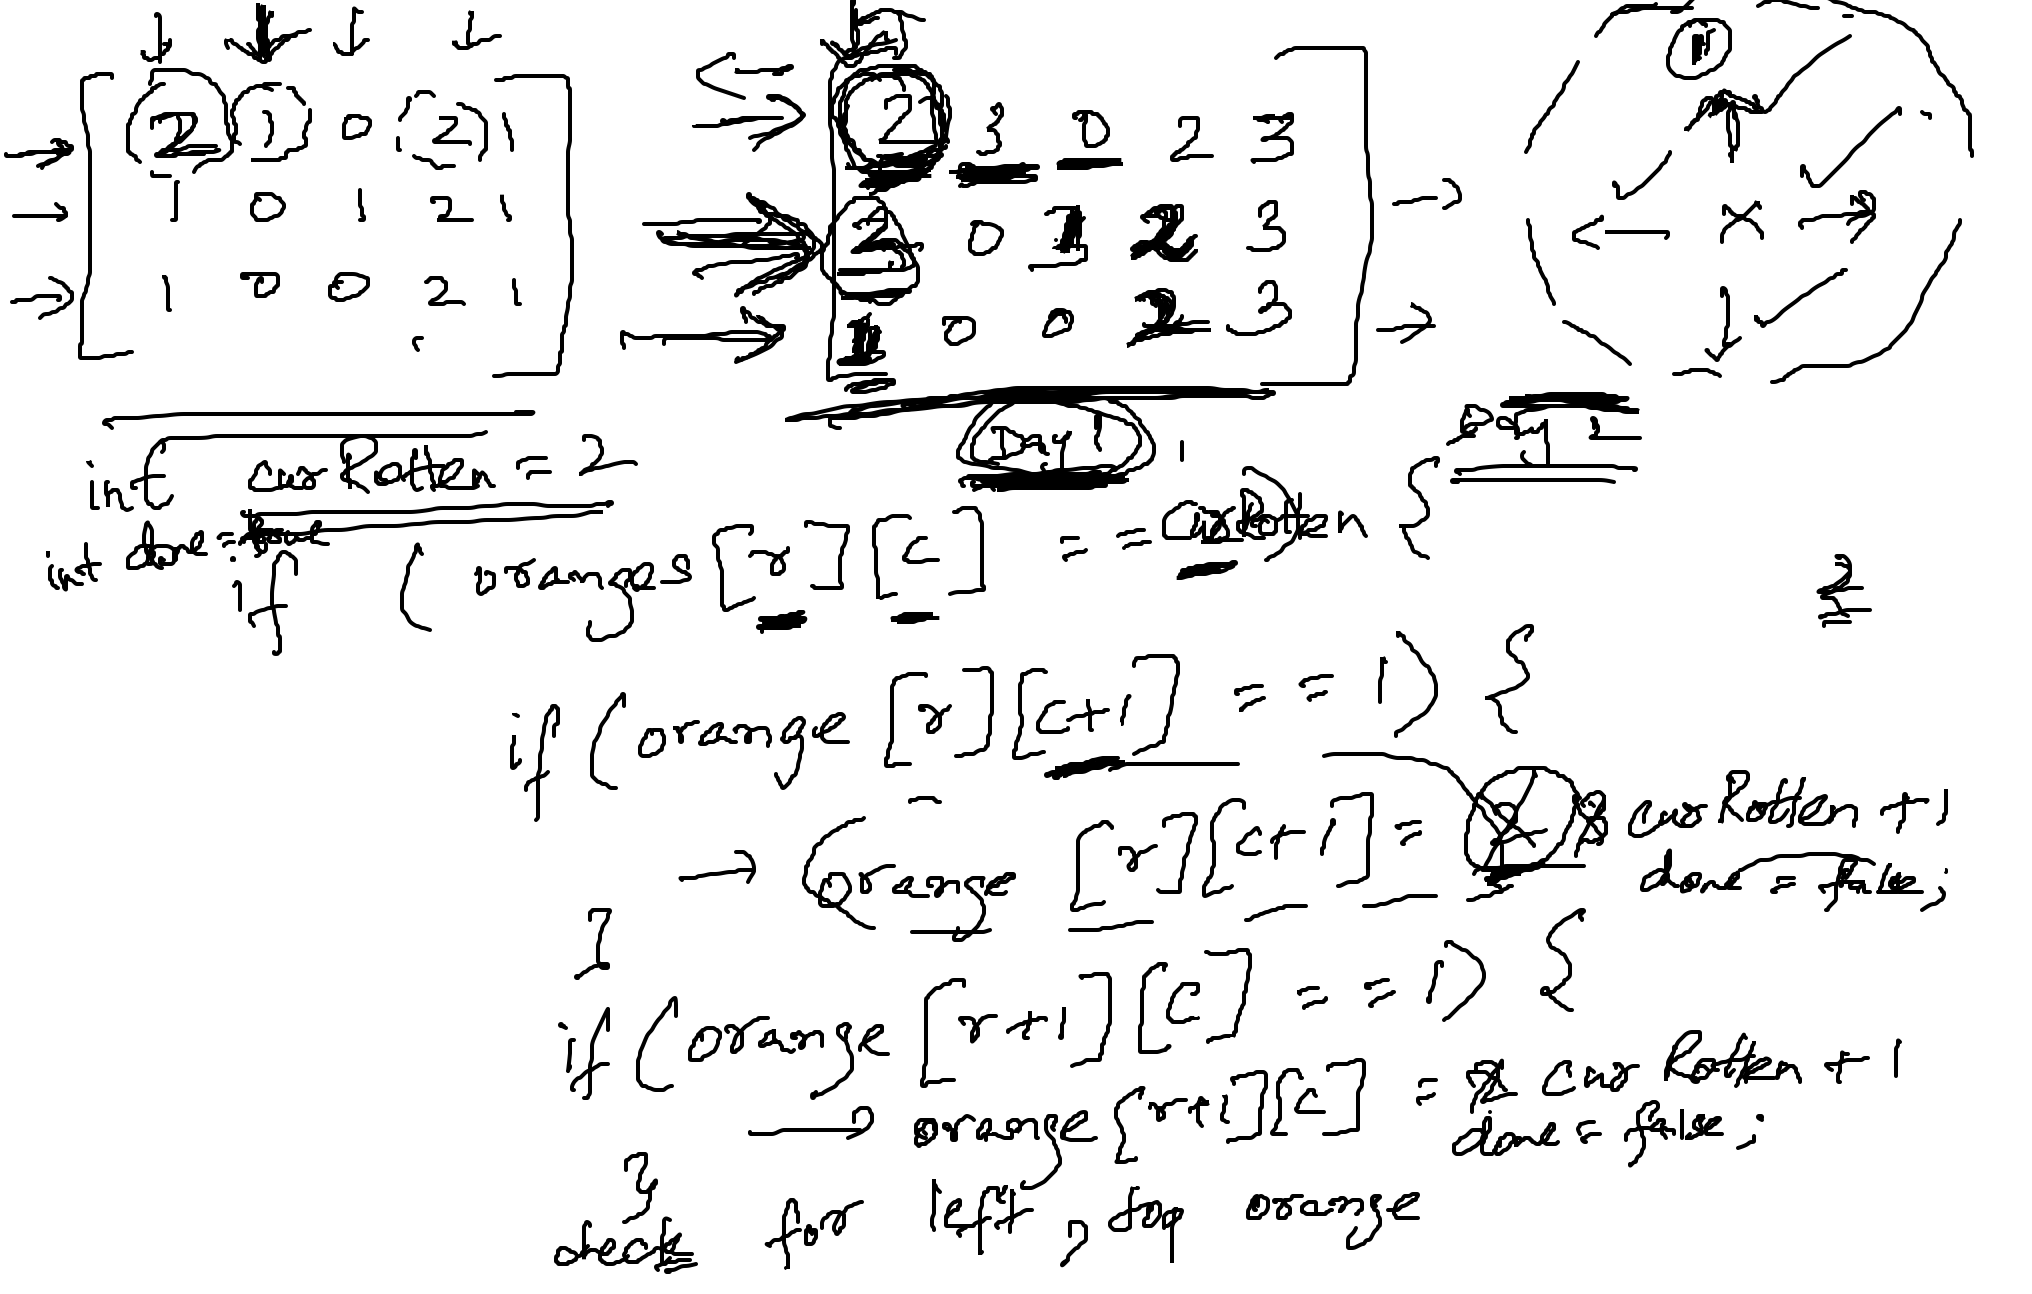 2 1 0 2 1
1 0 1 2 1
1 0 0 2 1
2 3 0 2 3
2 0 1 2 3
1 0 0 2 3
x
Day 1
Day 2
int curRotten = 2
int done = true
if (oranges [r][c] == curRotten) {
2
if (orange [r][c+1] == 1) {
→ orange [r][c+1] = 2 curRotten + 1
done = false;
}
if (orange [r+1][c] == 1) {
→ orange [r+1][c] = 2 curRotten + 1
done = false;
}
check for left, top orange